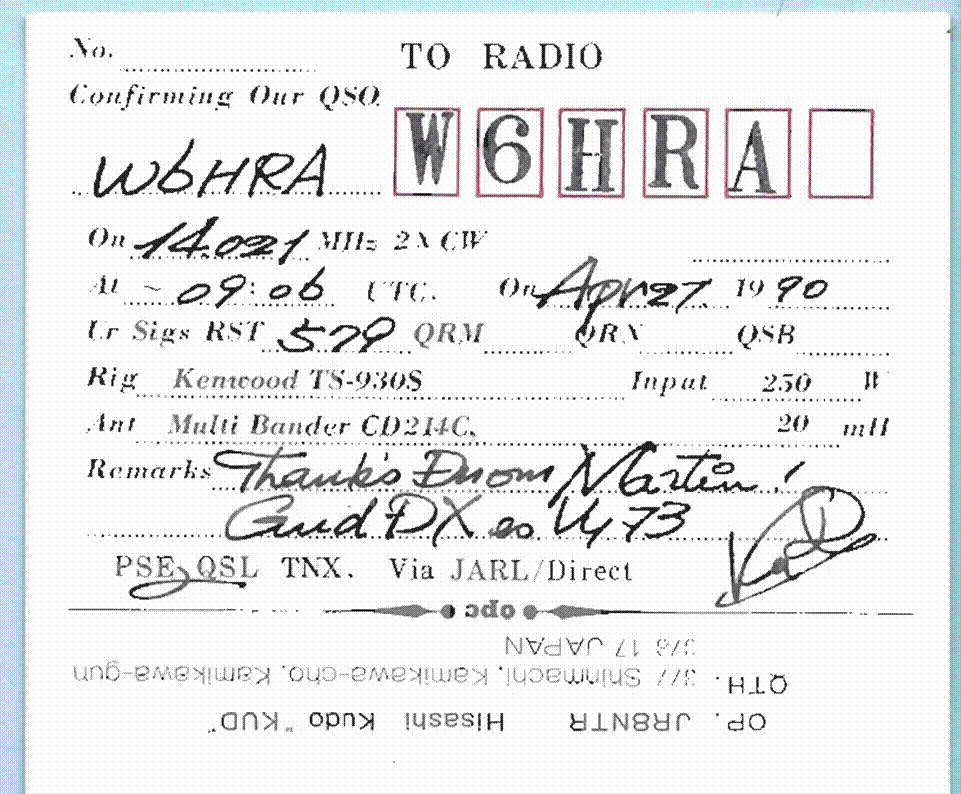 No.
TO RADIO
Confirming Our QSO
W6HRA
W6HRA
On 14.021 MHz 2X CW
At ~ 09:06 UTC. On Apr 27. 1990
Ur Sigs RST 579 QRM QRN QSB
Rig Kenwood TS-930S Input 250 W
Ant Multi Bander CD214C, 20 mH
Remarks Thanks Martin!
DX es Vy 73
PSE QSL TNX. Via JARL/Direct
opc
OP. JR8NTR Hisashi Kudo "KUD".
QTH. Shinmachi, Kamikawa-cho, Kamikawa-gun
17 JAPAN